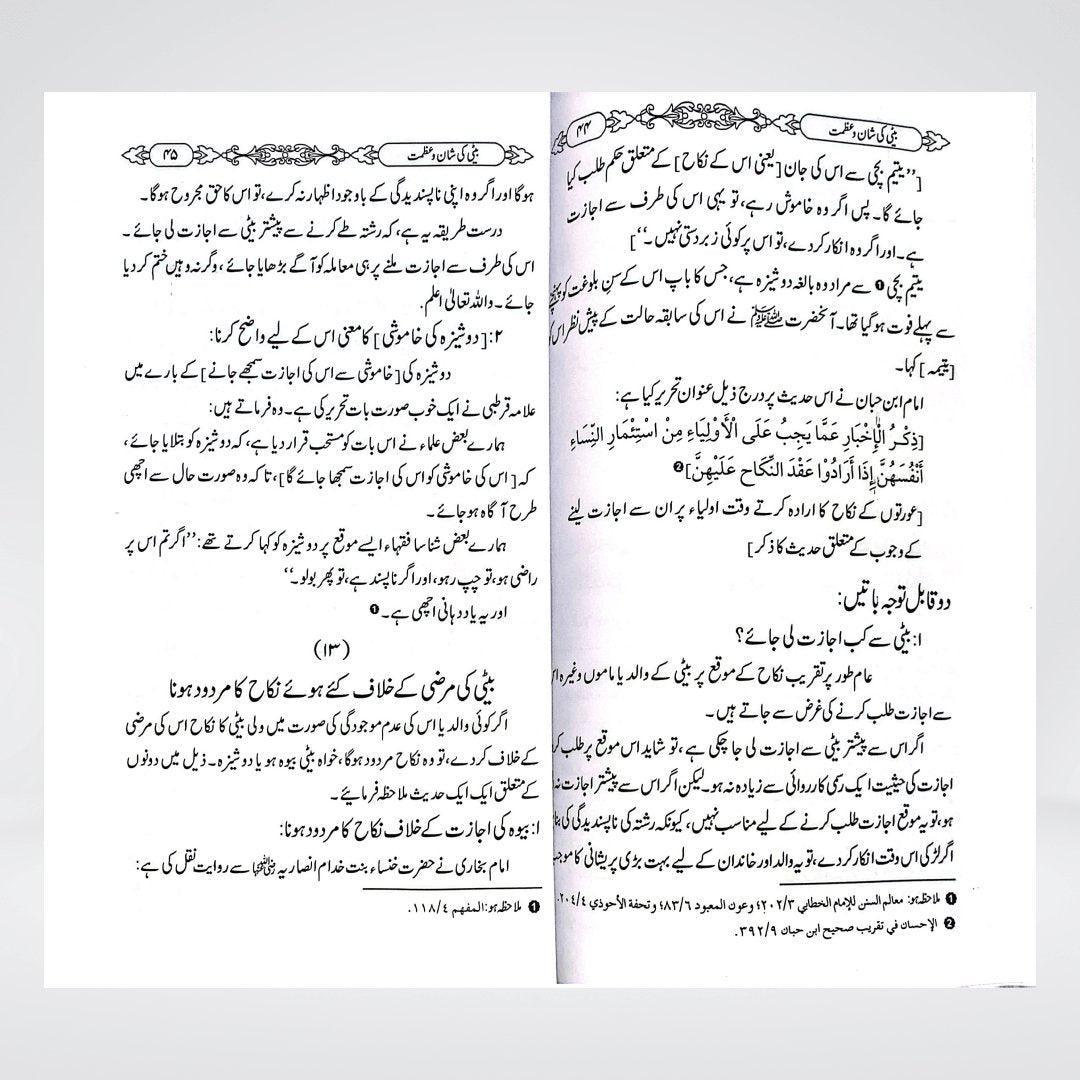 ۴۴
بیٹی کی شان و عظمت
[’’یتیم بچی سے اس کی جان [یعنی اس کے نکاح] کے متعلق حکم طلب کیا
جائے گا۔ پس اگر وہ خاموش رہے، تو یہی اس کی طرف سے اجازت
ہے۔ اور اگر وہ انکار کر دے، تو اس پر کوئی زبردستی نہیں۔‘‘]
یتیم بچی ❶ سے مراد وہ بالغہ دوشیزہ ہے، جس کا باپ اس کے سنِ بلوغت کو پہنچنے
سے پہلے فوت ہوگیا تھا۔ آنحضرت ﷺ نے اس کی سابقہ حالت کے پیش نظر اس
[یتیمہ] کہا۔
امام ابن حبان نے اس حدیث پر درج ذیل عنوان تحریر کیا ہے:
[ذِكْرُ الْإِخْبَارِ عَمَّا يَجِبُ عَلَى الْأَوْلِيَاءِ مِنْ اسْتِئْمَارِ النِّسَاءِ
أَنْفُسَهُنَّ إِذَا أَرَادُوْا عَقْدَ النِّكَاحِ عَلَيْهِنَّ] ❷
[عورتوں کے نکاح کا ارادہ کرتے وقت اولیاء پر ان سے اجازت لینے
کے وجوب کے متعلق حدیث کا ذکر]
دو قابل توجہ باتیں:
۱: بیٹی سے کب اجازت لی جائے؟
عام طور پر تقریب نکاح کے موقع پر بیٹی کے والد یا ماموں وغیرہ
سے اجازت طلب کرنے کی غرض سے جاتے ہیں۔
اگر اس سے پیشتر بیٹی سے اجازت لی جا چکی ہے، تو شاید اس موقع پر طلب
اجازت کی حیثیت ایک رسمی کارروائی سے زیادہ نہ ہو۔ لیکن اگر اس سے پیشتر اجازت نہ
ہو، تو یہ موقع اجازت طلب کرنے کے لیے مناسب نہیں، کیونکہ رشتہ کی ناپسندیدگی کی
اگر لڑکی اس وقت انکار کر دے، تو یہ والد اور خاندان کے لیے بہت بڑی پریشانی کا
❶ ملاحظہ ہو: معالم السنن للإمام الخطابي ۲۰۲/۳؛ وعون المعبود ۸۳/۶؛ وتحفة الأحوذي ۲۰٤/٤.
❷ الإحسان في تقريب صحيح ابن حبان ۳۹۲/۹.
۴۵
بیٹی کی شان و عظمت
ہوگا اور اگر وہ اپنی ناپسندیدگی کے باوجود اظہار نہ کرے، تو اس کا حق مجروح ہوگا۔
درست طریقہ یہ ہے، کہ رشتہ طے کرنے سے پیشتر بیٹی سے اجازت لی جائے۔
اس کی طرف سے اجازت ملنے پر ہی معاملہ کو آگے بڑھایا جائے، وگرنہ وہیں ختم کر دیا
جائے۔ واللہ تعالیٰ اعلم.
۲: [دوشیزہ کی خاموشی] کا معنی اس کے لیے واضح کرنا:
دوشیزہ کی [خاموشی سے اس کی اجازت سمجھے جانے] کے بارے میں
علامہ قرطبی نے ایک خوب صورت بات تحریر کی ہے۔ وہ فرماتے ہیں:
ہمارے بعض علماء نے اس بات کو مستحب قرار دیا ہے، کہ دوشیزہ کو بتلایا جائے،
کہ [اس کی خاموشی کو اس کی اجازت سمجھا جائے گا]، تاکہ وہ صورت حال سے اچھی
طرح آگاہ ہو جائے۔
ہمارے بعض شناسا فقہاء ایسے موقع پر دوشیزہ کو کہا کرتے تھے: ’’اگر تم اس پر
راضی ہو، تو چپ رہو، اور اگر ناپسند ہے، تو پھر بولو۔‘‘
اور یہ یاد دہانی اچھی ہے۔ ❶
(۱۳)
بیٹی کی مرضی کے خلاف کئے ہوئے نکاح کا مردود ہونا
اگر کوئی والد یا اس کی عدم موجودگی کی صورت میں ولی بیٹی کا نکاح اس کی مرضی
کے خلاف کر دے، تو وہ نکاح مردود ہوگا، خواہ بیٹی بیوہ ہو یا دوشیزہ۔ ذیل میں دونوں
کے متعلق ایک ایک حدیث ملاحظہ فرمائیے۔
ا: بیوہ کی اجازت کے خلاف نکاح کا مردود ہونا:
امام بخاری نے حضرت خنساء بنت خدام انصاریہ رضی اللہ عنہا سے روایت نقل کی ہے:
❶ ملاحظہ ہو: المفهم ۱۱۸/٤.